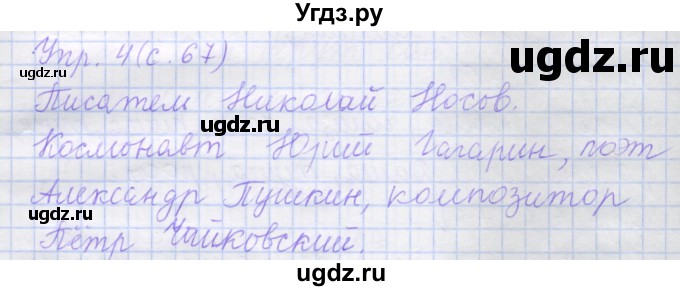 Угдз.ру
Упр. 4 (с. 67)
ugdz.ru
ugdz.ru
ugdz.ru
Писатель Николай Носов.
ugdz.ru
Космонавт Юрий Гагарин, поэт
ugdz.ru
ugdz.ru
Александр Пушкин, композитор
ugdz.ru
Пётр Чайковский.
ugdz.ru